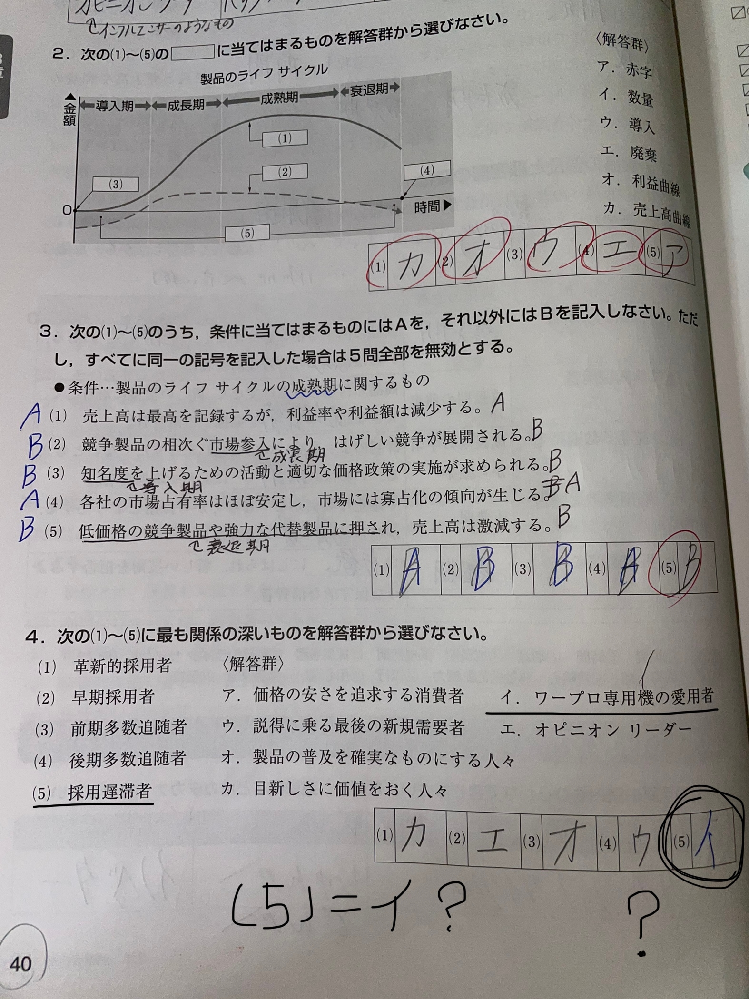 インフルエンサーのようなもの
2．次の⑴〜⑸の□に当てはまるものを解答群から選びなさい。
製品のライフ サイクル
金額
導入期 成長期 成熟期 衰退期
(1)
(2)
(3)
(4)
(5)
0
時間
〈解答群〉
ア．赤字
イ．数量
ウ．導入
エ．廃棄
オ．利益曲線
カ．売上高曲線
(1) カ (2) オ (3) ウ (4) エ (5) ア
3．次の⑴〜⑸のうち，条件に当てはまるものにはAを，それ以外にはBを記入しなさい。ただ
し，すべてに同一の記号を記入した場合は5問全部を無効とする。
●条件…製品のライフ サイクルの成熟期に関するもの
A (1) 売上高は最高を記録するが，利益率や利益額は減少する。A
B (2) 競争製品の相次ぐ市場参入により，はげしい競争が展開される。B
で成長期
B (3) 知名度を上げるための活動と適切な価格政策の実施が求められる。B
で導入期
A (4) 各社の市場占有率はほぼ安定し，市場には寡占化の傾向が生じる。A
B (5) 低価格の競争製品や強力な代替製品に押され，売上高は激減する。B
で衰退期
(1) A (2) B (3) B (4) (5) B
4．次の⑴〜⑸に最も関係の深いものを解答群から選びなさい。
(1) 革新的採用者 〈解答群〉
(2) 早期採用者 ア．価格の安さを追求する消費者 イ．ワープロ専用機の愛用者
(3) 前期多数追随者 ウ．説得に乗る最後の新規需要者 エ．オピニオン リーダー
(4) 後期多数追随者 オ．製品の普及を確実なものにする人々
(5) 採用遅滞者 カ．目新しさに価値をおく人々
(1) カ (2) エ (3) オ (4) ウ (5) イ
(5)=イ？ ？
40